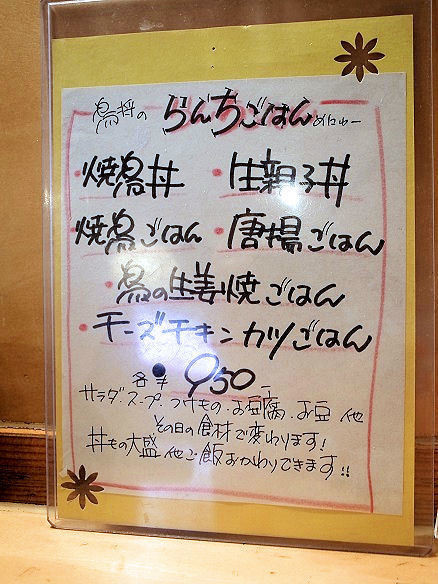 鳥将の らんちごはんめにゅー
・焼鳥丼 ・生親子丼
・焼鳥ごはん ・唐揚ごはん
・鳥の生姜焼ごはん
・チーズチキンカツごはん
各 ¥950-
サラダ.スープ.つけもの.お豆腐.お豆 他
その日の食材で変わります!
丼もの大盛 他ご飯おかわりできます!!